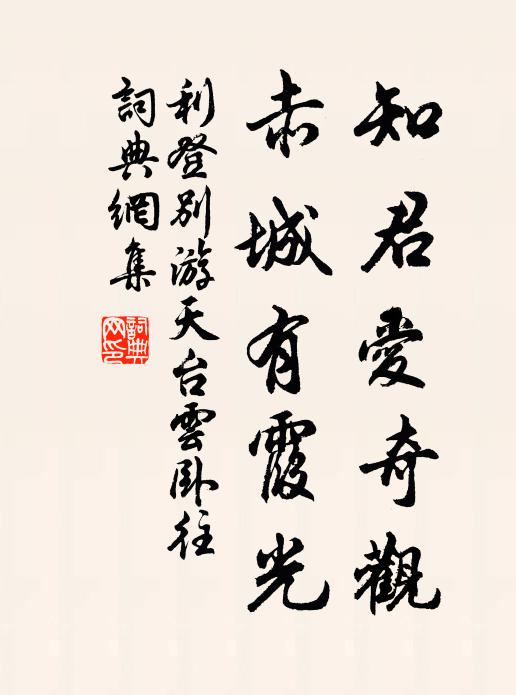 知君愛奇觀
赤城有霞光
利登別游天台雲卧往
詞典網集
詞典網印